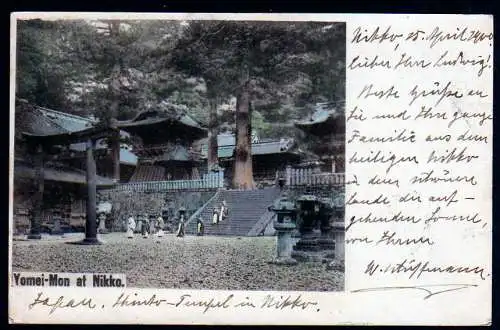 Nikko, 25. April 1900
lieber Herr Ludwig!
Beste Grüße an
Sie und Ihre ganze
Familie aus dem
heiligen Nikko
in dem schönen
Lande der auf-
gehenden Sonne,
von Ihrem
W. Stüffmann
Yomei-Mon at Nikko.
Japan. Shinto-Tempel in Nikko.